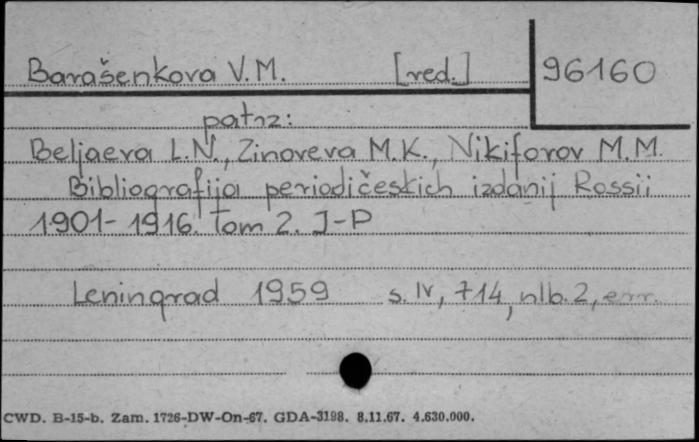 Barašenkova V.M. [red.] 96160
patrz:
Beljaeva L.N., Zinoveva M.K., Nikiforov M.M.
Bibliografija periodičeskich izdanij Rossii
1901-1916. Tom 2. I-P
Leningrad 1959 s. IV, 714, nlb. 2, err.
CWD. B-15-b. Zam. 1726-DW-On-67. GDA-3198. 8.11.67. 4.630.000.